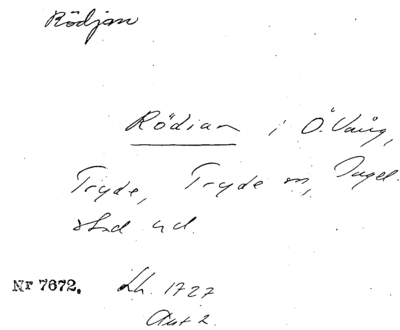 Rödjan
Rödian i Ö. Vång,
Tryde, Tryde sn, Ingel-
stad hd.
Nr 7672. Lh. 1727
Akt 2